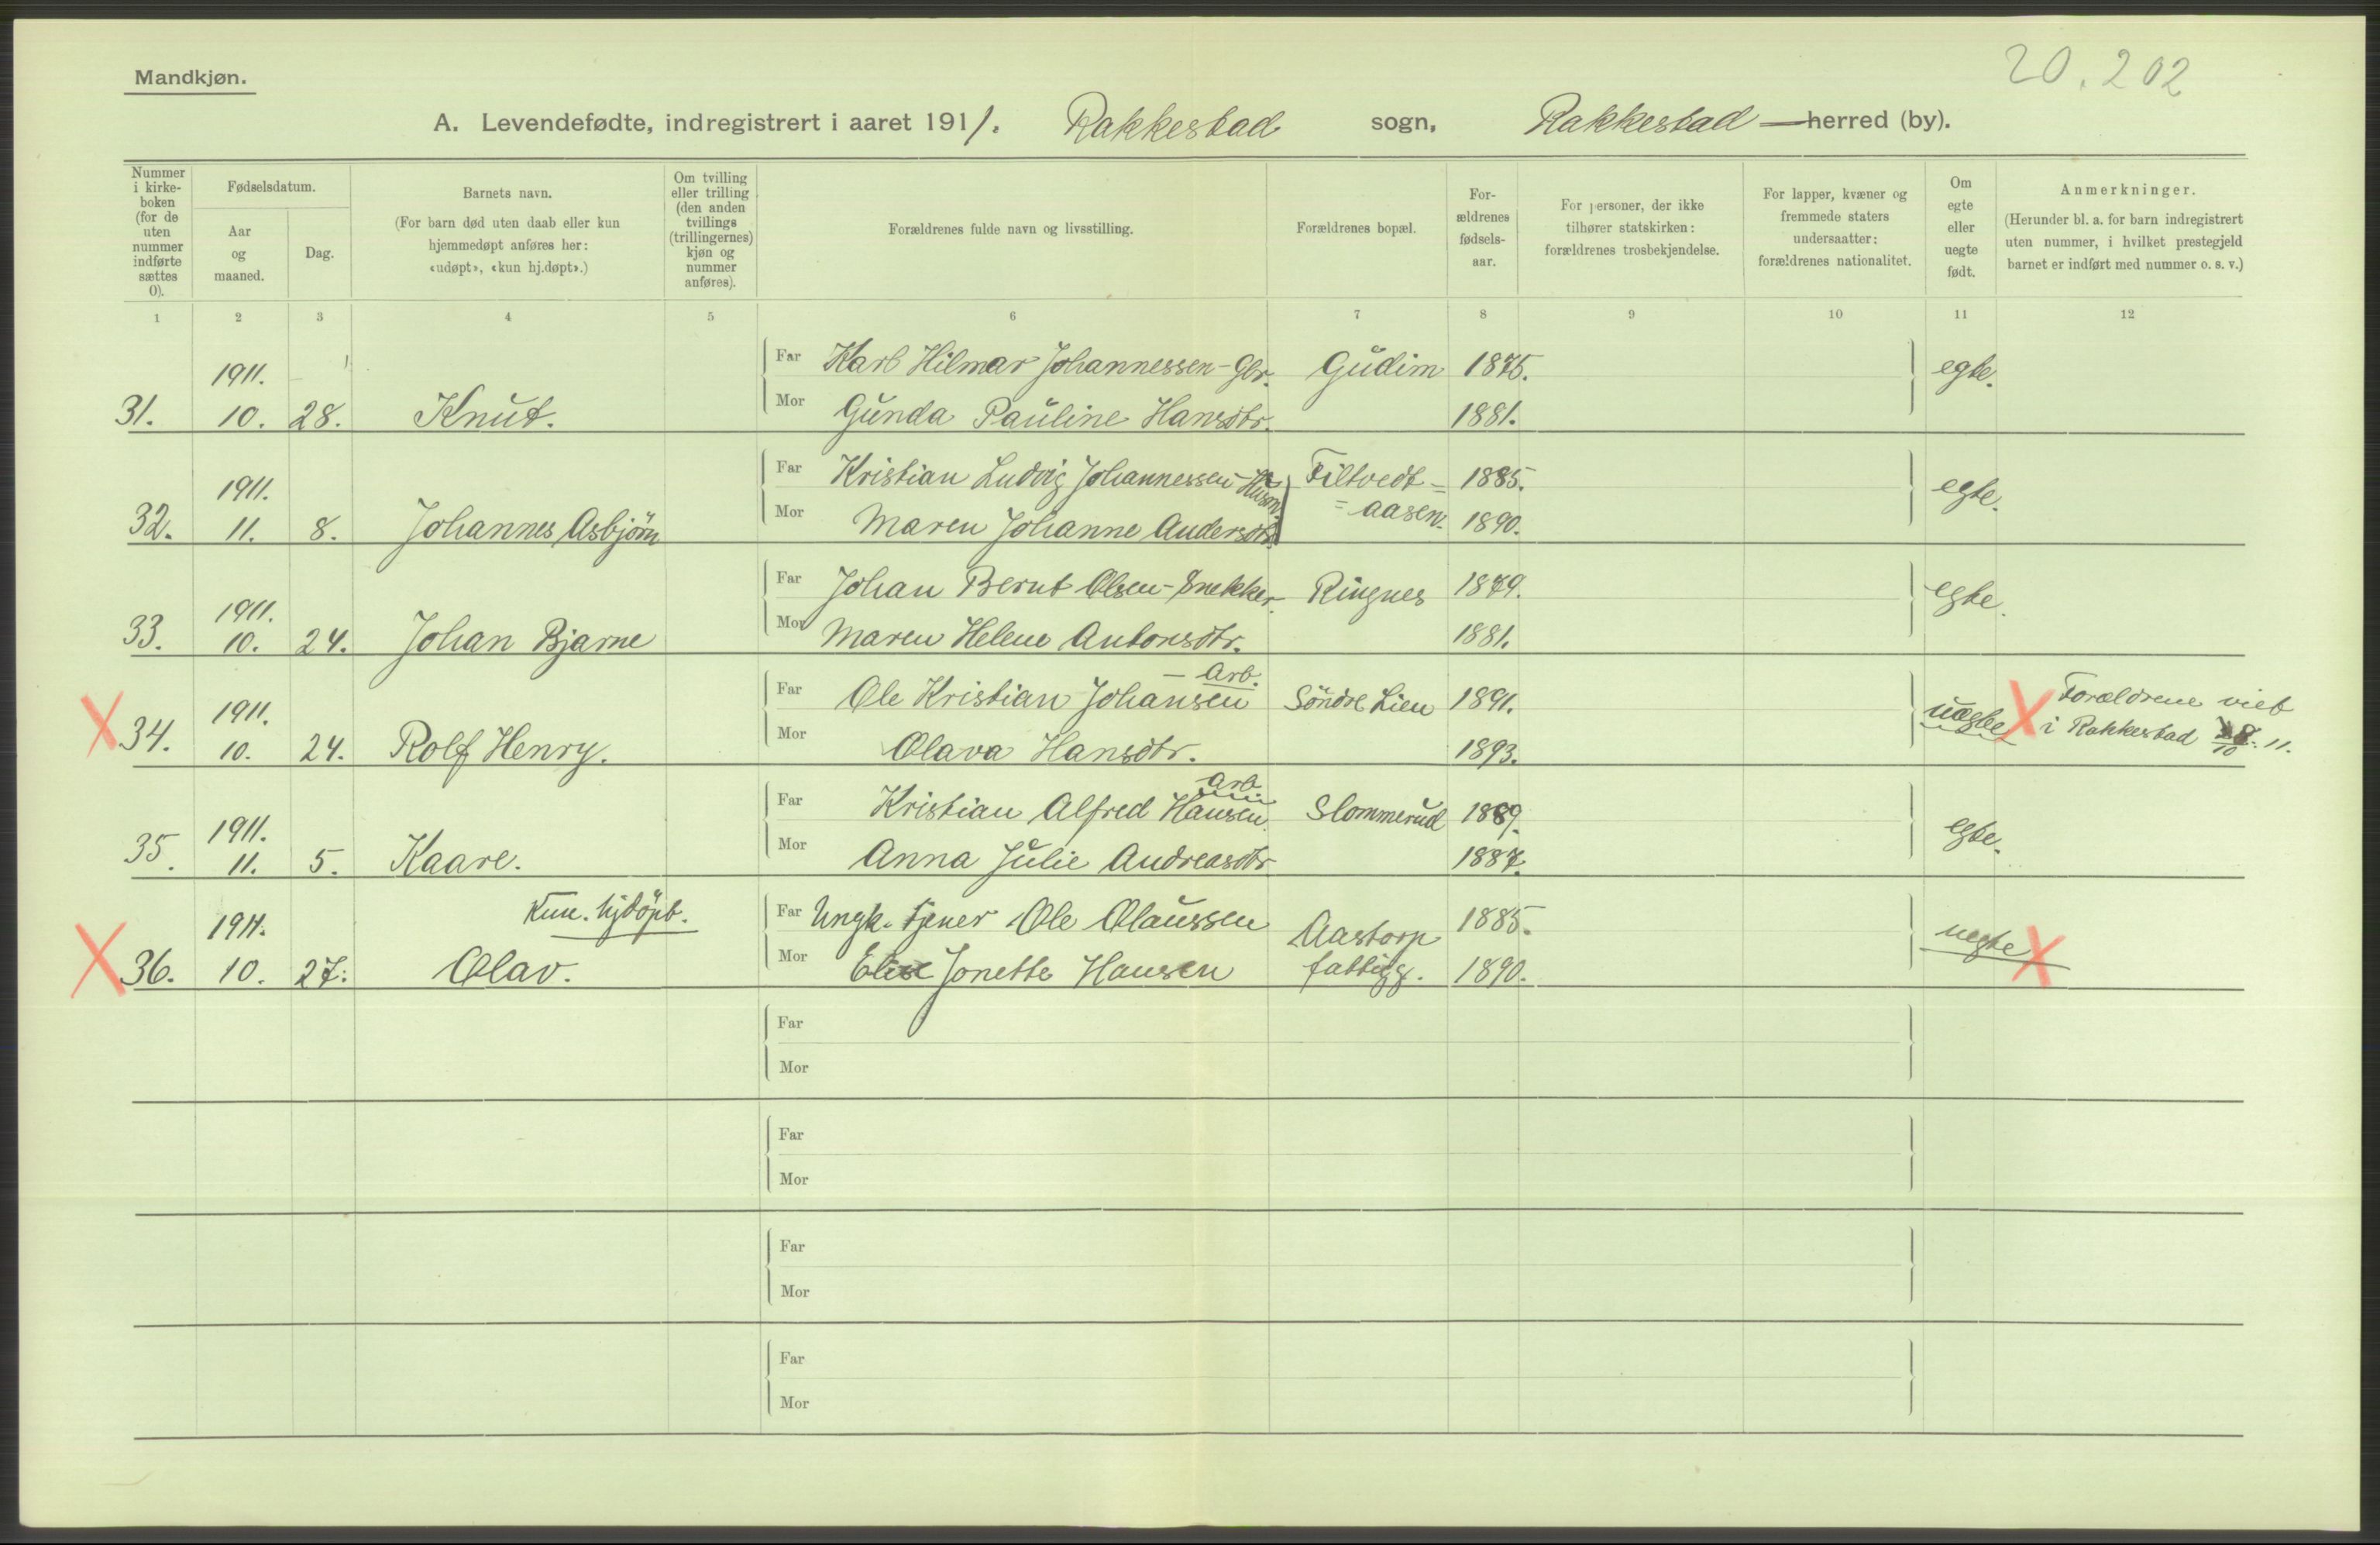 20.202
Mandkjøn.
A. Levendefødte, indregistrert i aaret 1911. Rakkestad sogn, Rakkestad herred (by).
Nummer i kirke-boken (for de uten nummer indførte sættes 0). Fødselsdatum. Aar og maaned. Dag. Barnets navn. (For barn død uten daab eller kun hjemmedøpt anføres her: «udøpt», «kun hj.døpt».) Om tvilling eller trilling (den anden tvillings (trillingernes) kjøn og nummer anføres). Forældrenes fulde navn og livsstilling. Forældrenes bopæl. For-ældrenes fødsels-aar. For personer, der ikke tilhører statskirken: forældrenes trosbekjendelse. For lapper, kvæner og fremmede staters undersaatter: forældrenes nationalitet. Om egte eller uegte født. Anmerkninger. (Herunder bl. a. for barn indregistrert uten nummer, i hvilket prestegjeld barnet er indført med nummer o. s. v.)
1 2 3 4 5 6 7 8 9 10 11 12
1911. Far Karl Hilmar Johannessen - Gbr. Gudim 1875. egte.
31. 10. 28. Knut. Mor Gunda Pauline Hansdtr. 1881.
1911. Far Kristian Ludvig Johannessen - Husm. Filtvedt= 1885. egte.
32. 11. 8. Johannes Asbjörn Mor Maren Johanne Andersdtr. =aasen. 1890.
1911. Far Johan Bernt Olsen - Snekker. Ringnes 1879. egte.
33. 10. 24. Johan Bjarne Mor Maren Helene Antonsdtr. 1881.
1911. Far Ole Kristian Johansen - Arb. Söndre Lien 1891. uegte X Forældrene viet
X 34. 10. 24. Rolf Henry. Mor Olava Hansdtr. 1893. i Rakkestad /10. 11.
1911. Far Kristian Alfred Hansen. Arb. Slommerud 1889. egte.
35. 11. 5. Kaare. Mor Anna Julie Andreasdtr 1887.
1911. Kun. hjdöpt. Far Ungk. tjener Ole Olaussen Aastorp 1885. uegte X
X 36. 10. 27. Olav. Mor Elise Jonette Hansen fattigg. 1890.
Far
Mor
Far
Mor
Far
Mor
Far
Mor